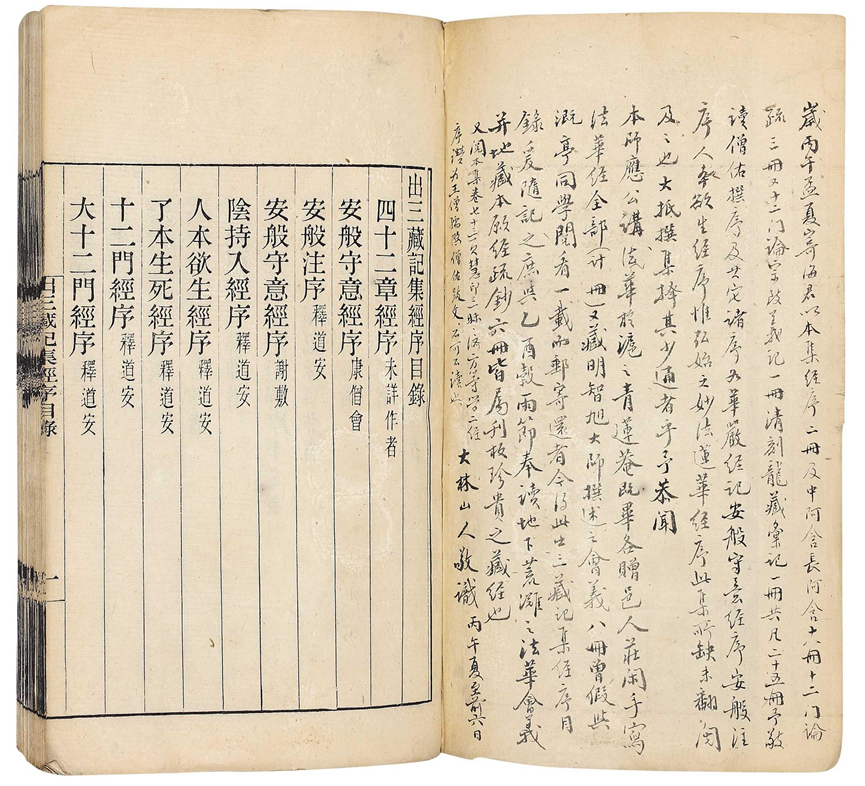 歲丙午孟夏寄海君以本集經序二冊及中阿含長阿含十八冊十二门論
疏三冊又十二门論宗致義記一冊清刻龍藏彙記一冊共凡二十五冊予敬
读僧佑撰序及其它諸序如華嚴经記安般守意经序安般注
序人本欲生经序惟弘始之妙法蓮華经序此集所缺未翻閱
及之也大抵撰集擇其少通者乎予恭聞
本師應公講法华於滬之青蓮菴既畢各贈邑人莊闲手寫
法华经全部(计 冊)又藏明智旭大師撰述之會義八冊曾假与
溉亭同学閱看一載而郵寄還者今得此出三藏記集经序目
錄爰隨記之庶與乙酉穀雨節奉读地下荒濉之法華會義
并地藏本願经疏鈔六冊皆属刊板珍貴之藏经也
又阅本集卷七十二又慧印三昧 方等学二经
序讚为王僧孺撰僧佑 文不可不读也
大林山人敬識 丙午夏至前六日
出三藏記集經序目錄
四十二章經序 未詳作者
安般守意經序 康僧會
安般注序 釋道安
安般守意經序 謝敷
陰持入經序 釋道安
人本欲生經序 釋道安
了本生死經序 釋道安
十二門經序 釋道安
大十二門經序 釋道安
出三藏記集經序目錄
一